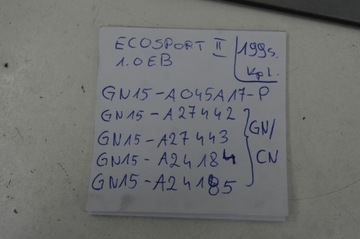 ECOSPORT II
1.0EB
199s.
kpl.
GN15-A045A17-P
GN15-A27442
GN15-A27443
GN15-A24184
GN15-A24185
GN/
CN